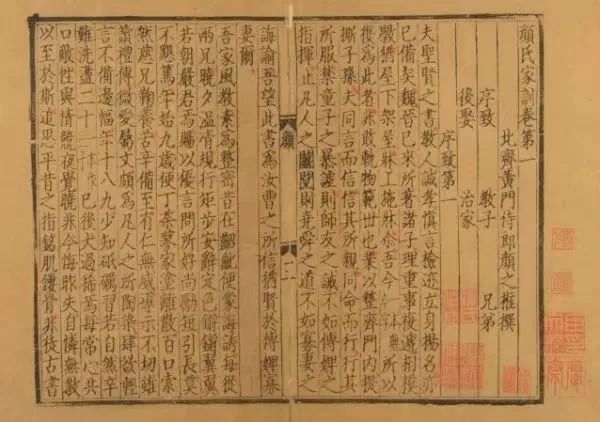 顔氏家訓卷第一
北齊黃門侍郎顔之推撰
序致 敎子 兄弟
後娶 治家
序致第一
夫聖賢之書敎人誠孝慎言檢迹立身揚名亦
已備矣魏晉已來所著諸子理重事複遞相模
斆猶屋下架屋牀上施牀爾吾今所以
復為此者非敢軌物範世也業以整齊門內提
撕子孫夫同言而信信其所親同命而行行其
所服禁童子之暴謔則師友之誡不如傅婢之
指揮止凡人之鬭鬩則堯舜之道不如寡妻之
顔
誨諭吾望此書為汝曹之所信猶賢於傅婢寡
妻爾
吾家風敎素為整密昔在齠齓便蒙誨誘每從
兩兄曉夕溫凊規行矩步安辭定色鏘鏘翼翼
若朝嚴君焉賜以優言問所好尚勵短引長莫
不懇篤年始九歲便丁荼蓼家塗離散百口索
然慈兄鞠養苦辛備至有仁無威導示不切雖
讀禮傳微愛屬文頗為凡人之所陶染肆欲輕
言不備邊幅年十八九少知砥礪習若自然卒
難洗盪二十已後大過稀焉每常心共
口敵性與情競夜覺曉非今悔昨失自憐無敎
以至於斯追思平昔之指銘肌鏤骨非徒古書